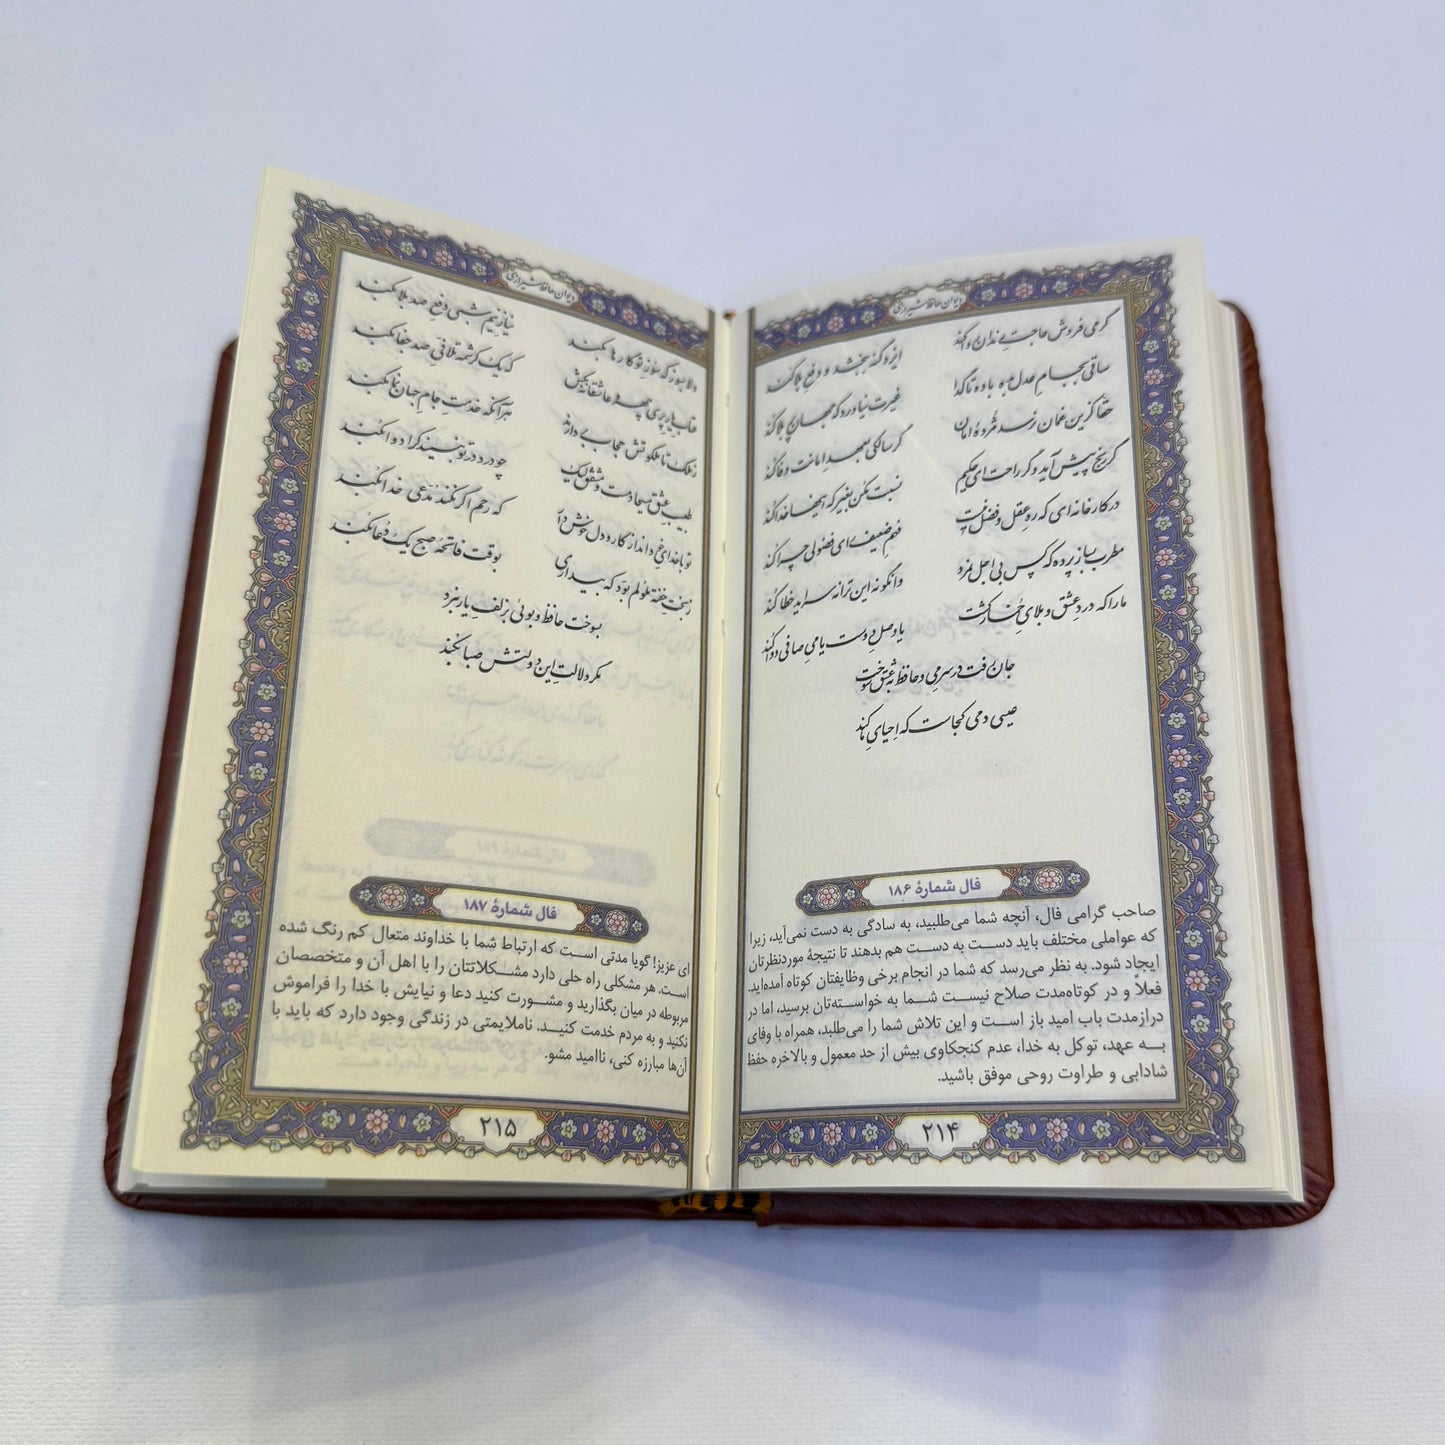 دیوان حافظ شیرازی
گر می فروش حاجت رندان روا کند
ایزد گنه ببخشد و دفع بلا کند
ساقی بجام عدل بده باده تا گدا
غیرت نیاورد که جهان پر بلا کند
حقا کزین غمان برسد مژدهٔ امان
گر سالکی بعهد امانت وفا کند
گر رنج پیش آید و گر راحت ای حکیم
نسبت مکن بغیر که اینها خدا کند
در کارخانه ای که ره عقل و فضل نیست
فهم ضعیف رای فضولی چرا کند
مطرب بساز پرده که کس بی اجل نمرد
وانکو نه این ترانه سراید خطا کند
ما را که درد عشق و بلای خمار کشت
یا وصل دوست یا می صافی دوا کند
جان رفت در سر می و حافظ به عشق سوخت
عیسی دمی کجاست که احیای ما کند
فال شمارهٔ ۱۸۶
صاحب گرامی فال، آنچه شما می‌طلبید، به سادگی به دست نمی‌آید، زیرا
که عواملی مختلف باید دست به دست هم بدهند تا نتیجهٔ موردنظرتان
ایجاد شود. به نظر می‌رسد که شما در انجام برخی وظایفتان کوتاه آمده‌اید.
فعلاً و در کوتاه‌مدت صلاح نیست شما به خواسته‌تان برسید، اما در
درازمدت باب امید باز است و این تلاش شما را می‌طلبد، همراه با وفای
به عهد، توکل به خدا، عدم کنجکاوی بیش از حد معمول و بالاخره حفظ
شادابی و طراوت روحی موفق باشید.
۲۱۴
دیوان حافظ شیرازی
دلا بسوز که سوز تو کارها بکند
نیاز نیم شبی دفع صد بلا بکند
عتاب یار پری چهره عاشقانه بکش
که یک کرشمه تلافی صد جفا بکند
ز ملک تا ملکوتش حجاب بردارند
هر آنکه خدمت جام جهان نما بکند
طبیب عشق مسیحا دمست و مشفق لیک
چو درد در تو نبیند کرا دوا بکند
تو با خدای خود انداز کار و دل خوش دار
که رحم اگر نکند مدعی خدا بکند
ز بخت خفته ملولم بود که بیداری
بوقت فاتحهٔ صبح یک دعا بکند
بسوخت حافظ و بوئی بزلف یار نبرد
مگر دلالت این دولتش صبا بکند
فال شمارهٔ ۱۸۷
ای عزیز! گویا مدتی است که ارتباط شما با خداوند متعال کم رنگ شده
است. هر مشکلی راه حلی دارد مشکلاتتان را با اهل آن و متخصصان
مربوطه در میان بگذارید و مشورت کنید دعا و نیایش با خدا را فراموش
نکنید و به مردم خدمت کنید. ناملایمتی در زندگی وجود دارد که باید با
آن‌ها مبارزه کنی، ناامید مشو.
۲۱۵